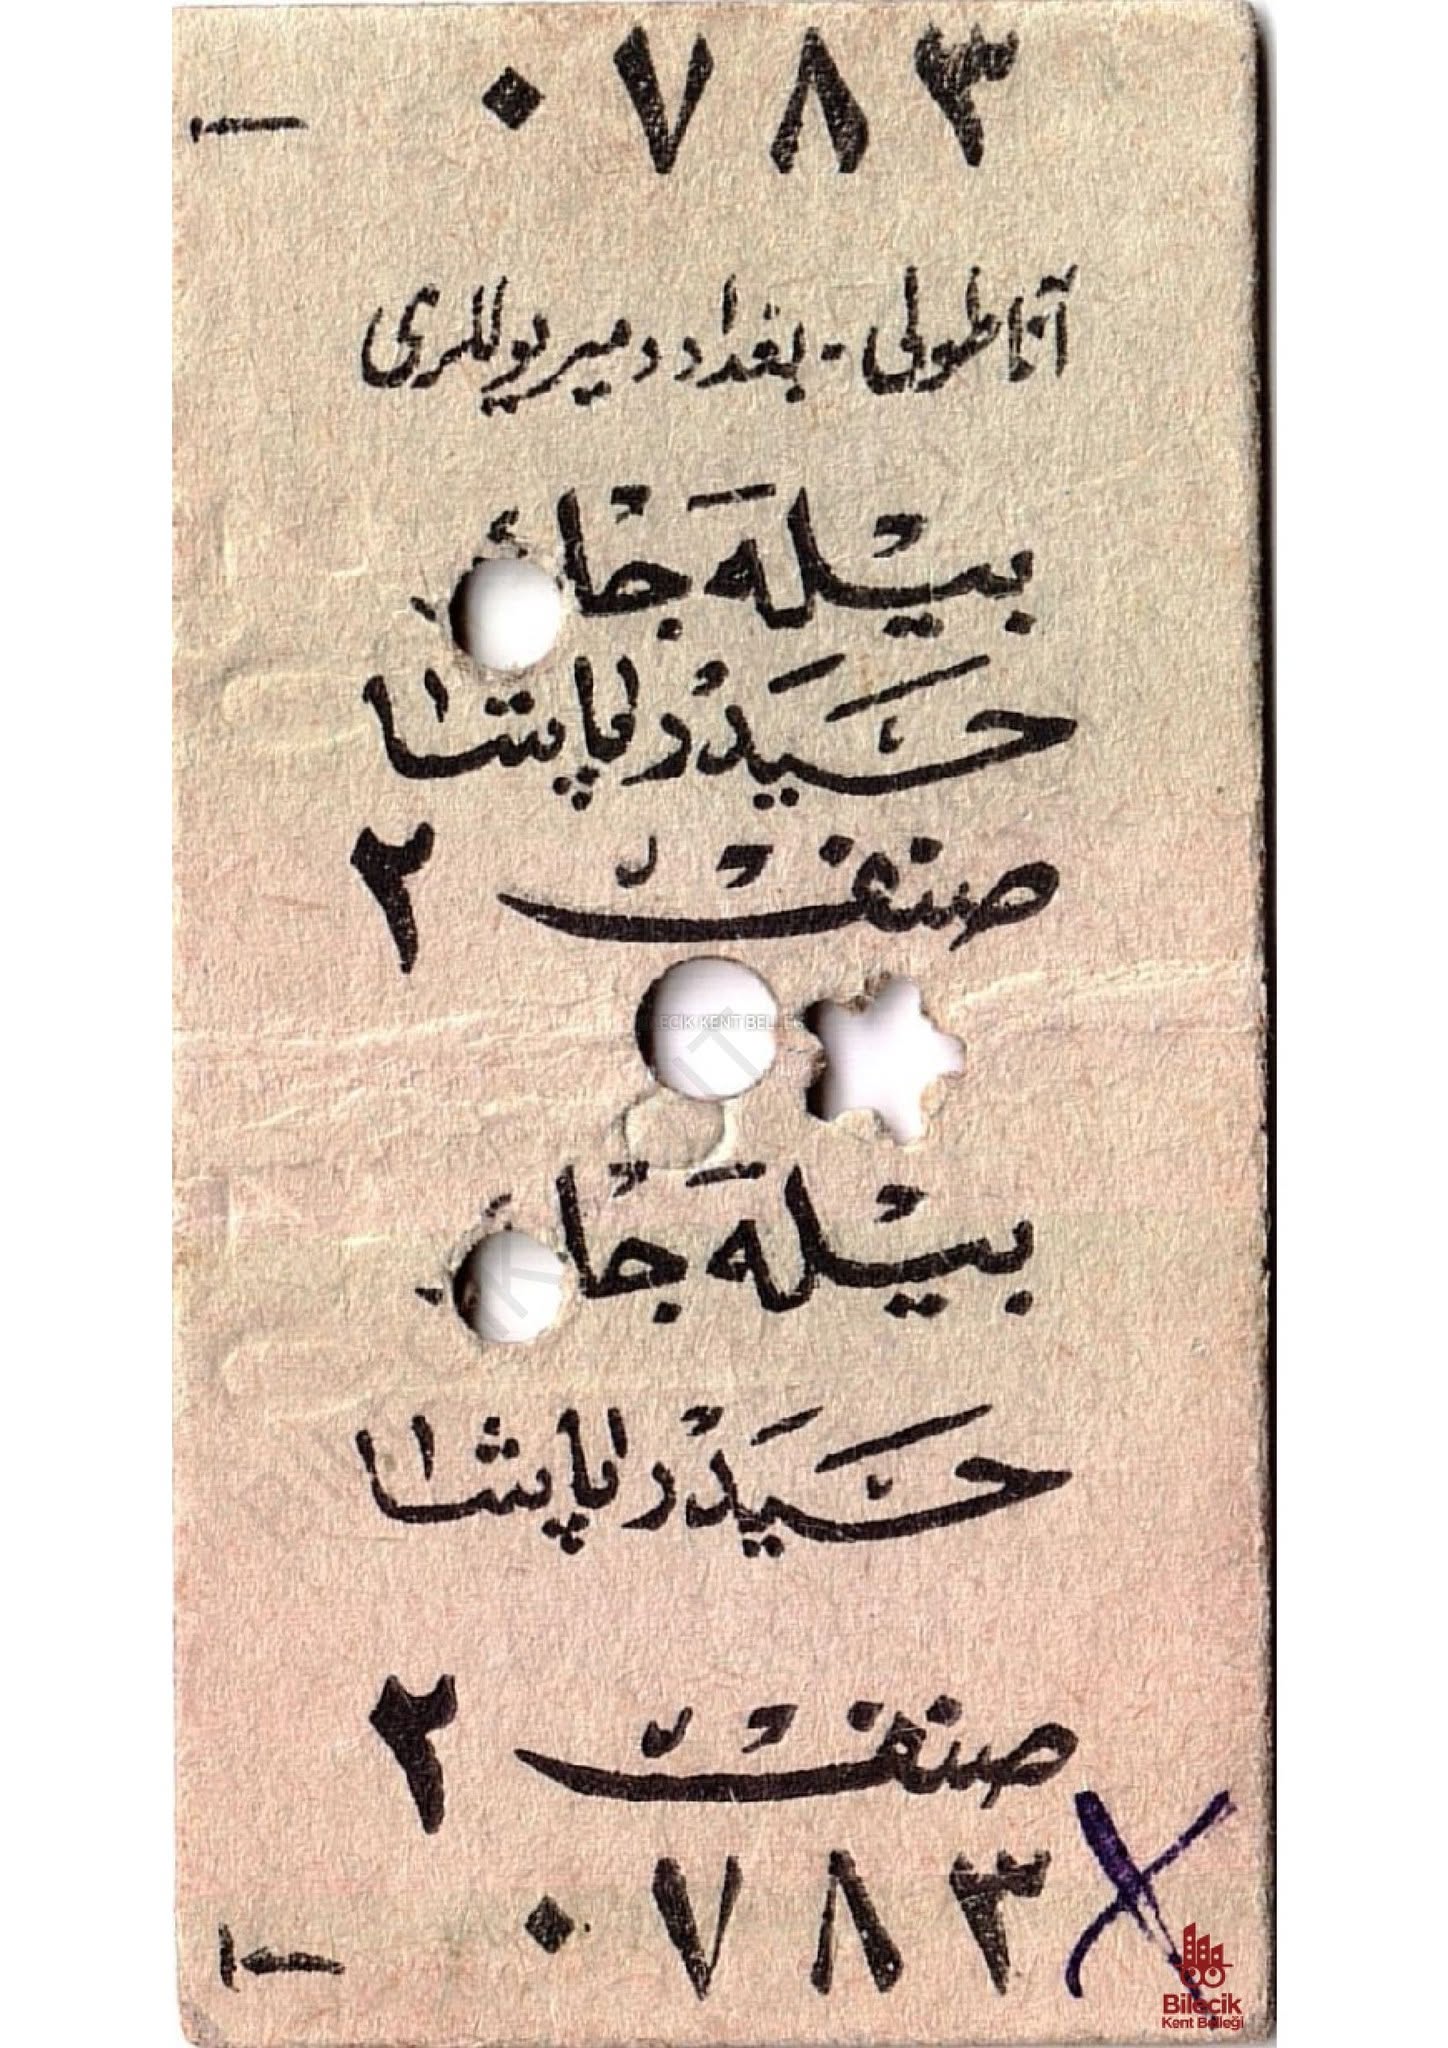 ٠٧٨٣ ١
آناطولی - بغداد دمیریوللری
بیله جك
حیدر پاشا
صنف ٢
بیله جك
حیدر پاشا
صنف ٢
٠٧٨٣ ١
Bilecik
Kent Belleği